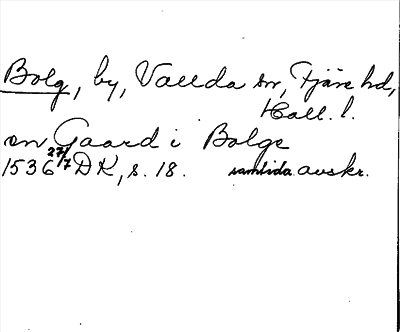 Bolg, by, Vallda sn, Fjäre hd,
Hall. l.
en Gaard i Bolge
1536 27/7 DK, s. 18. samtida avskr.